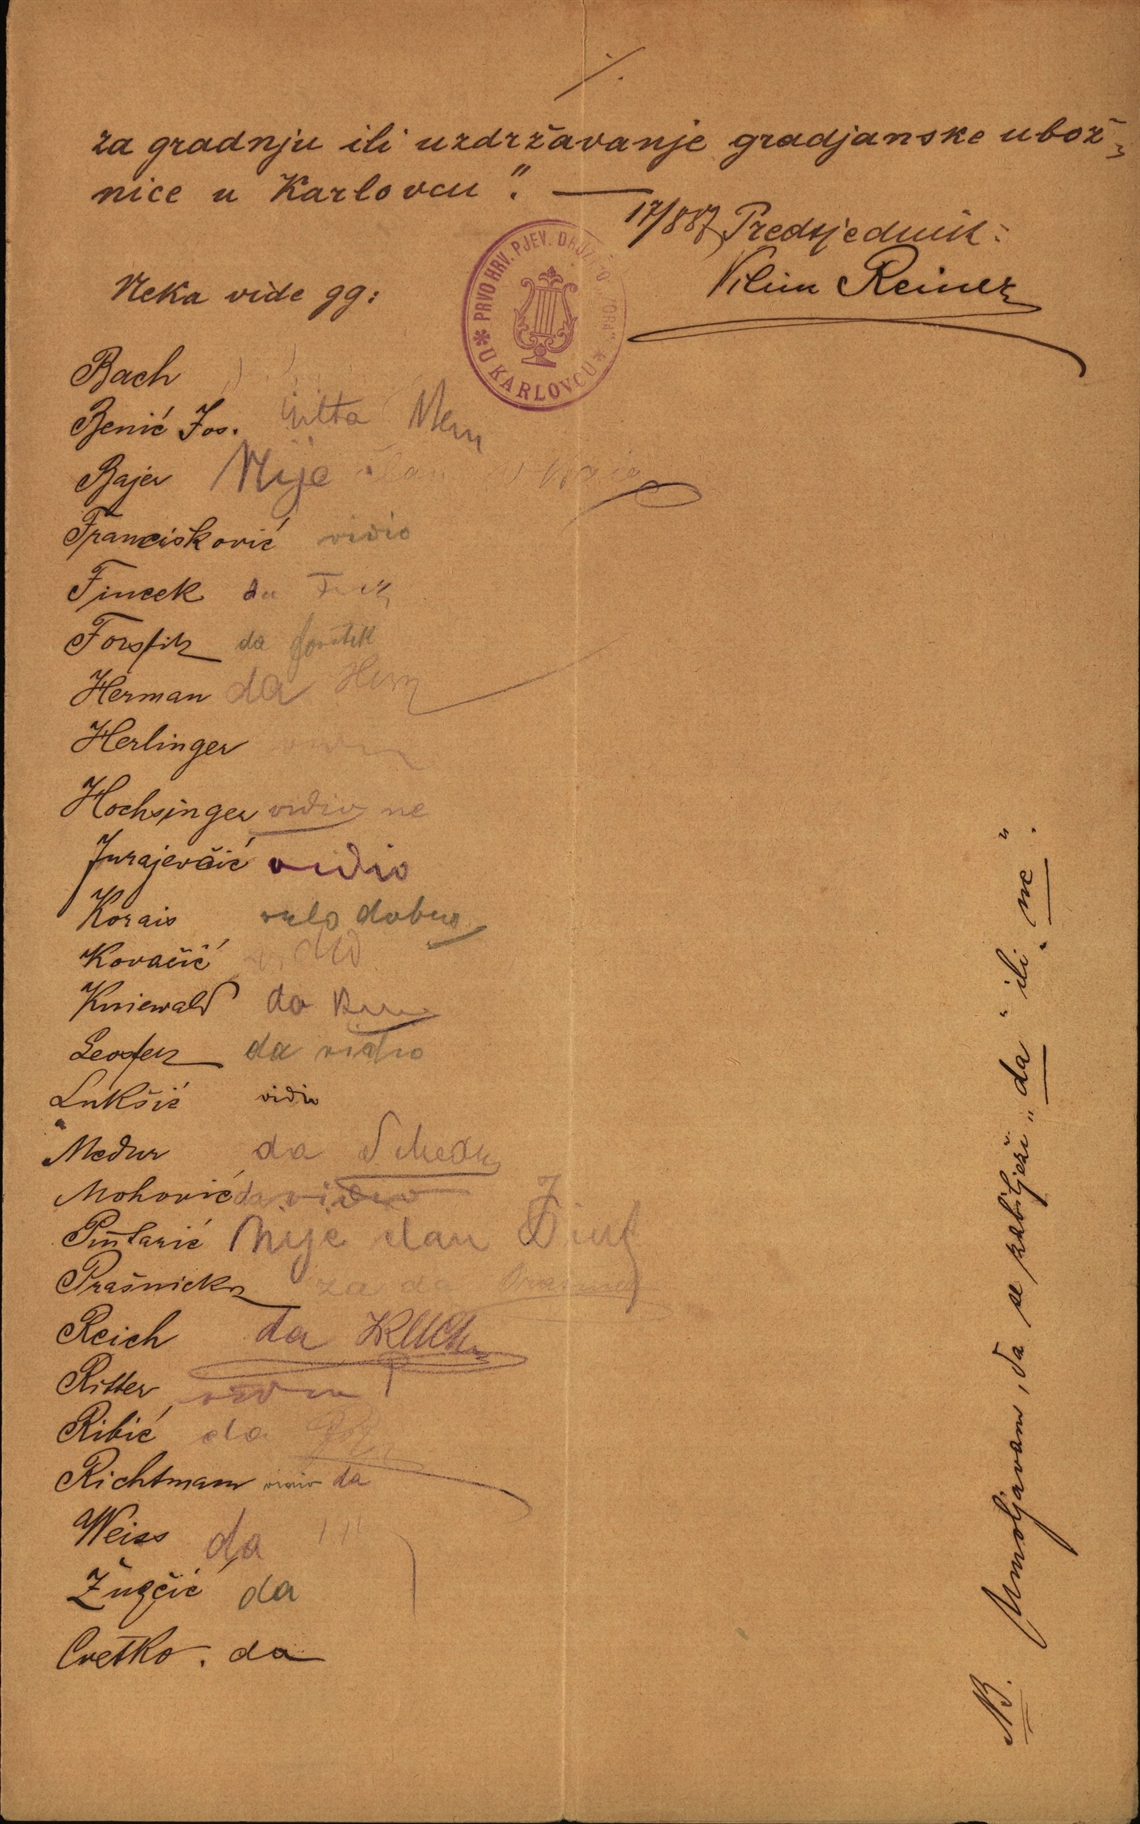 za gradnju ili uzdržavanje gradjanske ubož-
nice u Karlovcu". —
17/887 Predsjednik:
Vilim Reiner
PRVO HRV. PJEV. DRUŽTVO "ZORA"
* U KARLOVCU *
Neka vide gg:
Bach
Benić Jos.
Bajer Nije član
Francisković vidio
Fincek da
Forstik da
Herman da
Herlinger
Hochsinger vidio ne
Jurajevčić vidio
Korais vrlo dobro
Kovačić vidio
Kniewald da
da vidio
Lukšić vidio
Medur da
Mohorić da vidio
Pintarić Nije član
za da
Reich da Reich
Ritter
Ribić da
Richtmann vidio da
Weiss da
Žugčić da
Cvetko. da
NB. Umoljavam, da se zabilježi „da" ili „ne".